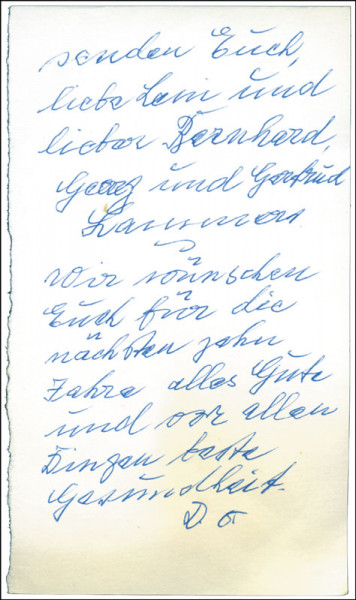 senden Euch,
liebe Leni und
lieber Bernhard,
Georg und Gertrud
Lammers
Wir wünschen
Euch für die
nächsten zehn
Jahre alles Gute
und vor allen
Dingen beste
Gesundheit.
D. O